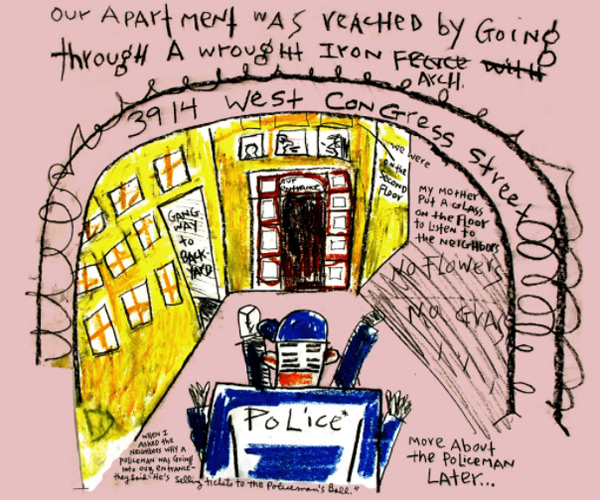 Our Apartment was reached by Going
through A wrought Iron
Arch.
3914 West Congress Street
we were
on the
Second
Floor
our
entrance
GANG
WAY
to
BACK
YARD
My Mother
Put A Glass
on the Floor
to listen to
the Neighbors
No Flowers
No Grass
Police*
When I
Asked the
Neighbors why A
Policeman was Going
Into our entrance-
they Said: "He's Selling tickets to the Policeman's Ball."
More About
the Policeman
Later...